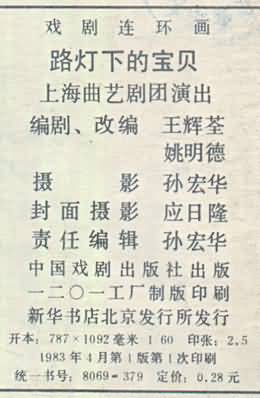 戏剧连环画
路灯下的宝贝
上海曲艺剧团演出
编剧、改编 王辉荃
姚明德
摄影 孙宏华
封面摄影 应日隆
责任编辑 孙宏华
中国戏剧出版社出版
一二〇一工厂制版印刷
新华书店北京发行所发行
开本：787×1092毫米 1 60 印张：2.5
1983年4月第1版第1次印刷
统一书号：8069=379 定价：0.28元